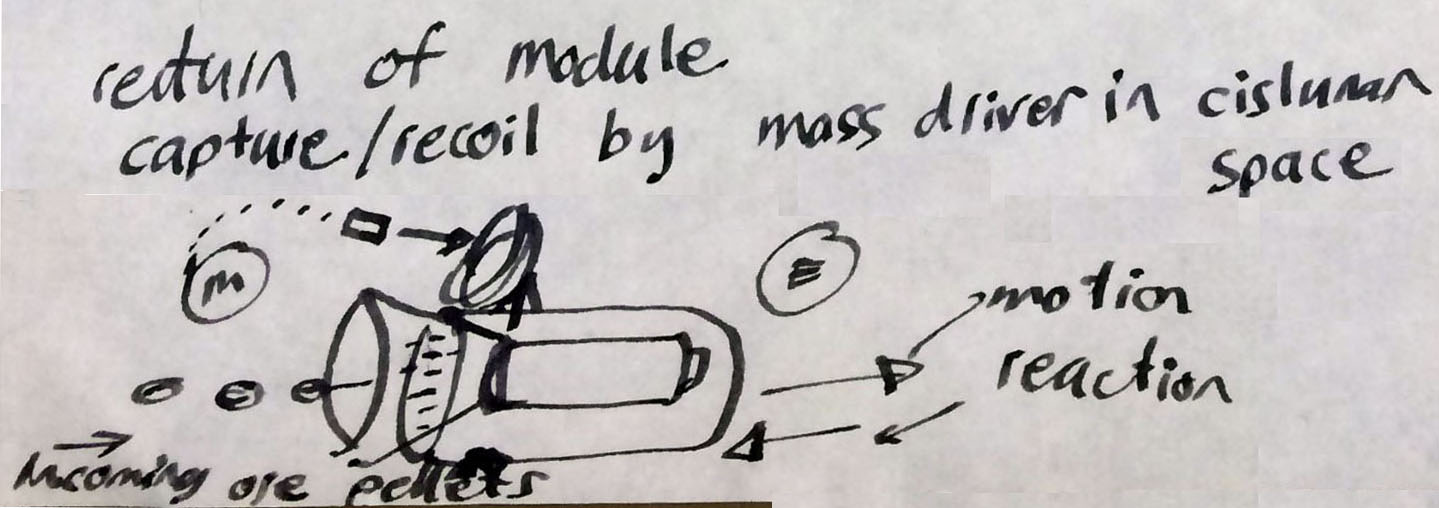 return of module
capture/recoil by mass driver in cislunar
space
M
E
motion
reaction
Incoming ore pellets